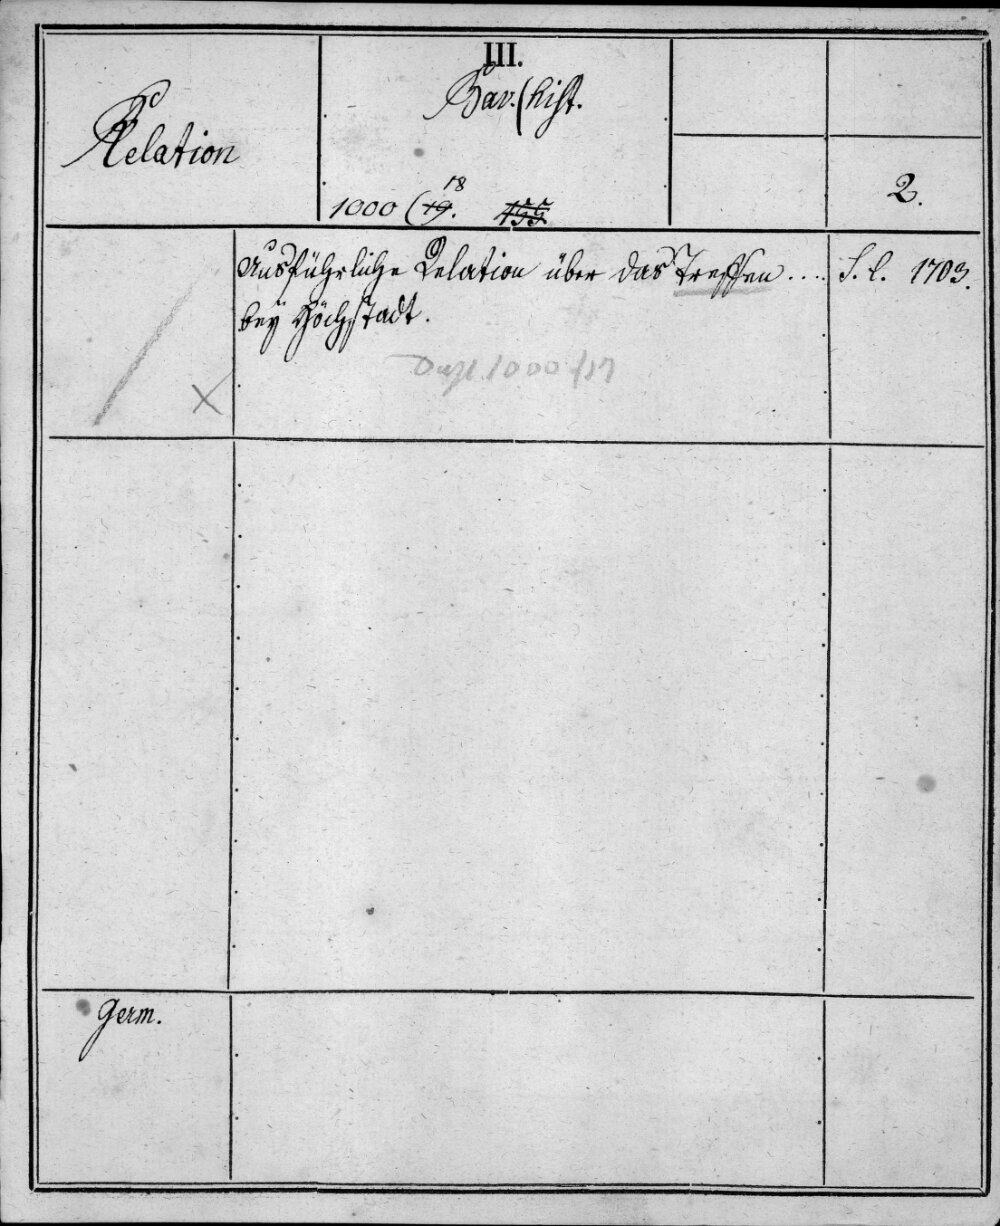 III.
Bav. (hist.
Relation
18
1000 (19.
2.
Ausführliche Relation über das Treffen .... S. l. 1703.
beÿ Höchstadt.
Dupl. 1000/17
Germ.